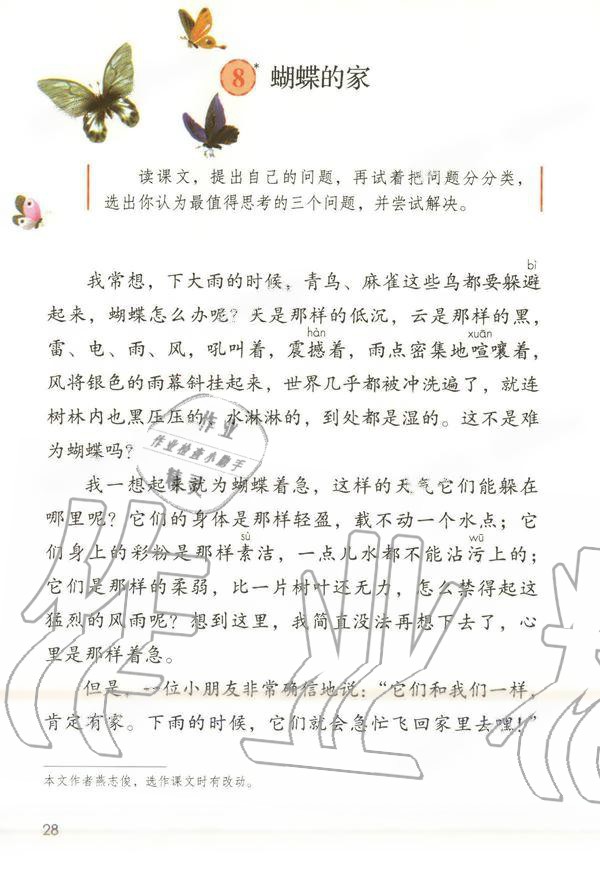 8* 蝴蝶的家
读课文，提出自己的问题，再试着把问题分分类，
选出你认为最值得思考的三个问题，并尝试解决。
bì
我常想，下大雨的时候，青鸟、麻雀这些鸟都要躲避
起来，蝴蝶怎么办呢？天是那样的低沉，云是那样的黑，
hàn xuān
雷、电、雨、风，吼叫着，震撼着，雨点密集地喧嚷着，
风将银色的雨幕斜挂起来，世界几乎都被冲洗遍了，就连
树林内也黑压压的、水淋淋的，到处都是湿的。这不是难
为蝴蝶吗？
我一想起来就为蝴蝶着急，这样的天气它们能躲在
哪里呢？它们的身体是那样轻盈，载不动一个水点；它
sù wū
们身上的彩粉是那样素洁，一点儿水都不能沾污上的；
它们是那样的柔弱，比一片树叶还无力，怎么禁得起这
猛烈的风雨呢？想到这里，我简直没法再想下去了，心
里是那样着急。
但是，一位小朋友非常确信地说：“它们和我们一样，
肯定有家。下雨的时候，它们就会急忙飞回家里去嘿！”
本文作者燕志俊，选作课文时有改动。
28
作业
作业检查小助手
精灵
作业精